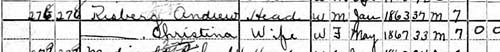 276 276 Risberg Andrew Head W M Jan 1863 37 M 7
Christina Wife W F May 1867 33 M 7 0 0